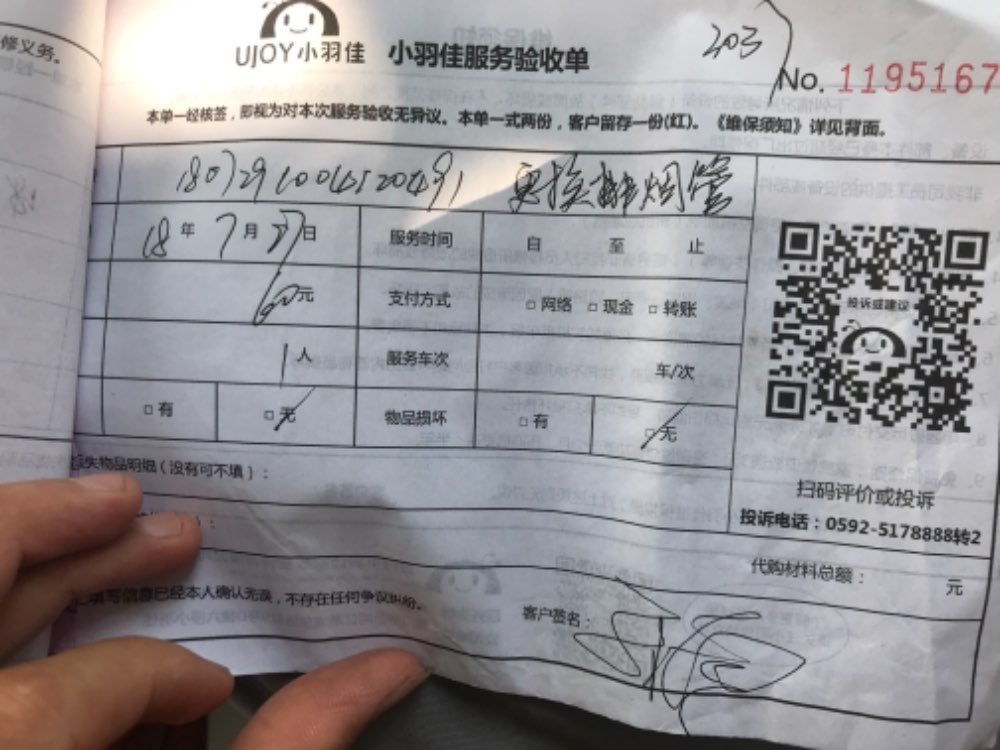 修义务。
UJOY小羽佳 小羽佳服务验收单
203
No. 1195167
本单一经核签，即视为对本次服务验收无异议。本单一式两份，客户留存一份(红)。《维保须知》详见背面。
更换排烟管
18年7月27日 服务时间 自 至 止
60元 支付方式 □网络 □现金 □转账
1人 服务车次 车/次
□有 □无 物品损坏 □有 □无
投诉或建议
扫码评价或投诉
投诉电话：0592-5178888转2
损失物品明细（没有可不填）：
代购材料总额： 元
填写信息已经本人确认无误，不存在任何争议纠纷。
客户签名：